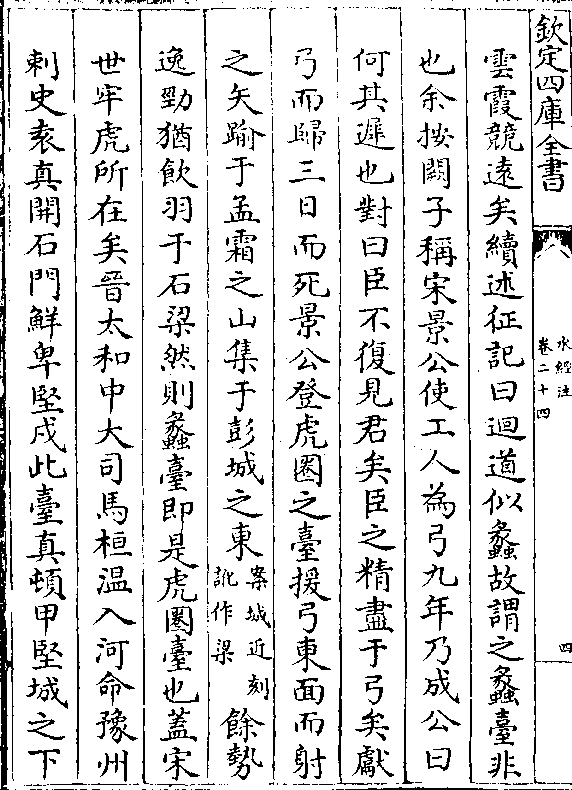 欽定四庫全書
水經注
卷二十四
四
雲霞競遠矣續述征記曰迴道似蠡故謂之蠡臺非
也余按闕子稱宋景公使工人為弓九年乃成公曰
何其遲也對曰臣不復見君矣臣之精盡于弓矣獻
弓而歸三日而死景公登虎圈之臺援弓東面而射
之矢踰于孟霜之山集于彭城之東案城近刻訛作梁餘勢
逸勁猶飲羽于石梁然則蠡臺即是虎圈臺也蓋宋
世牢虎所在矣晉太和中大司馬桓温入河命豫州
刺史袁真開石門鮮卑堅戍此臺真頓甲堅城之下